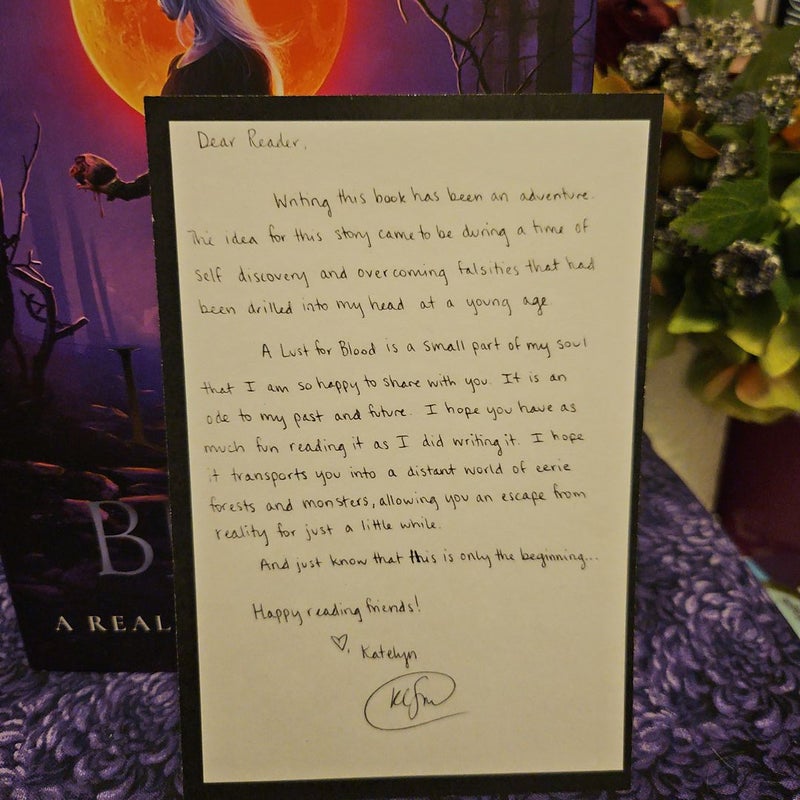 Dear Reader,
Writing this book has been an adventure.
The idea for this story came to be during a time of
self discovery and overcoming falsities that had
been drilled into my head at a young age.
A Lust for Blood is a small part of my soul
that I am so happy to share with you. It is an
ode to my past and future. I hope you have as
much fun reading it as I did writing it. I hope
it transports you into a distant world of eerie
forests and monsters, allowing you an escape from
reality for just a little while.
And just know that this is only the beginning...
Happy reading friends!
♡, Katelyn
B
A REAL